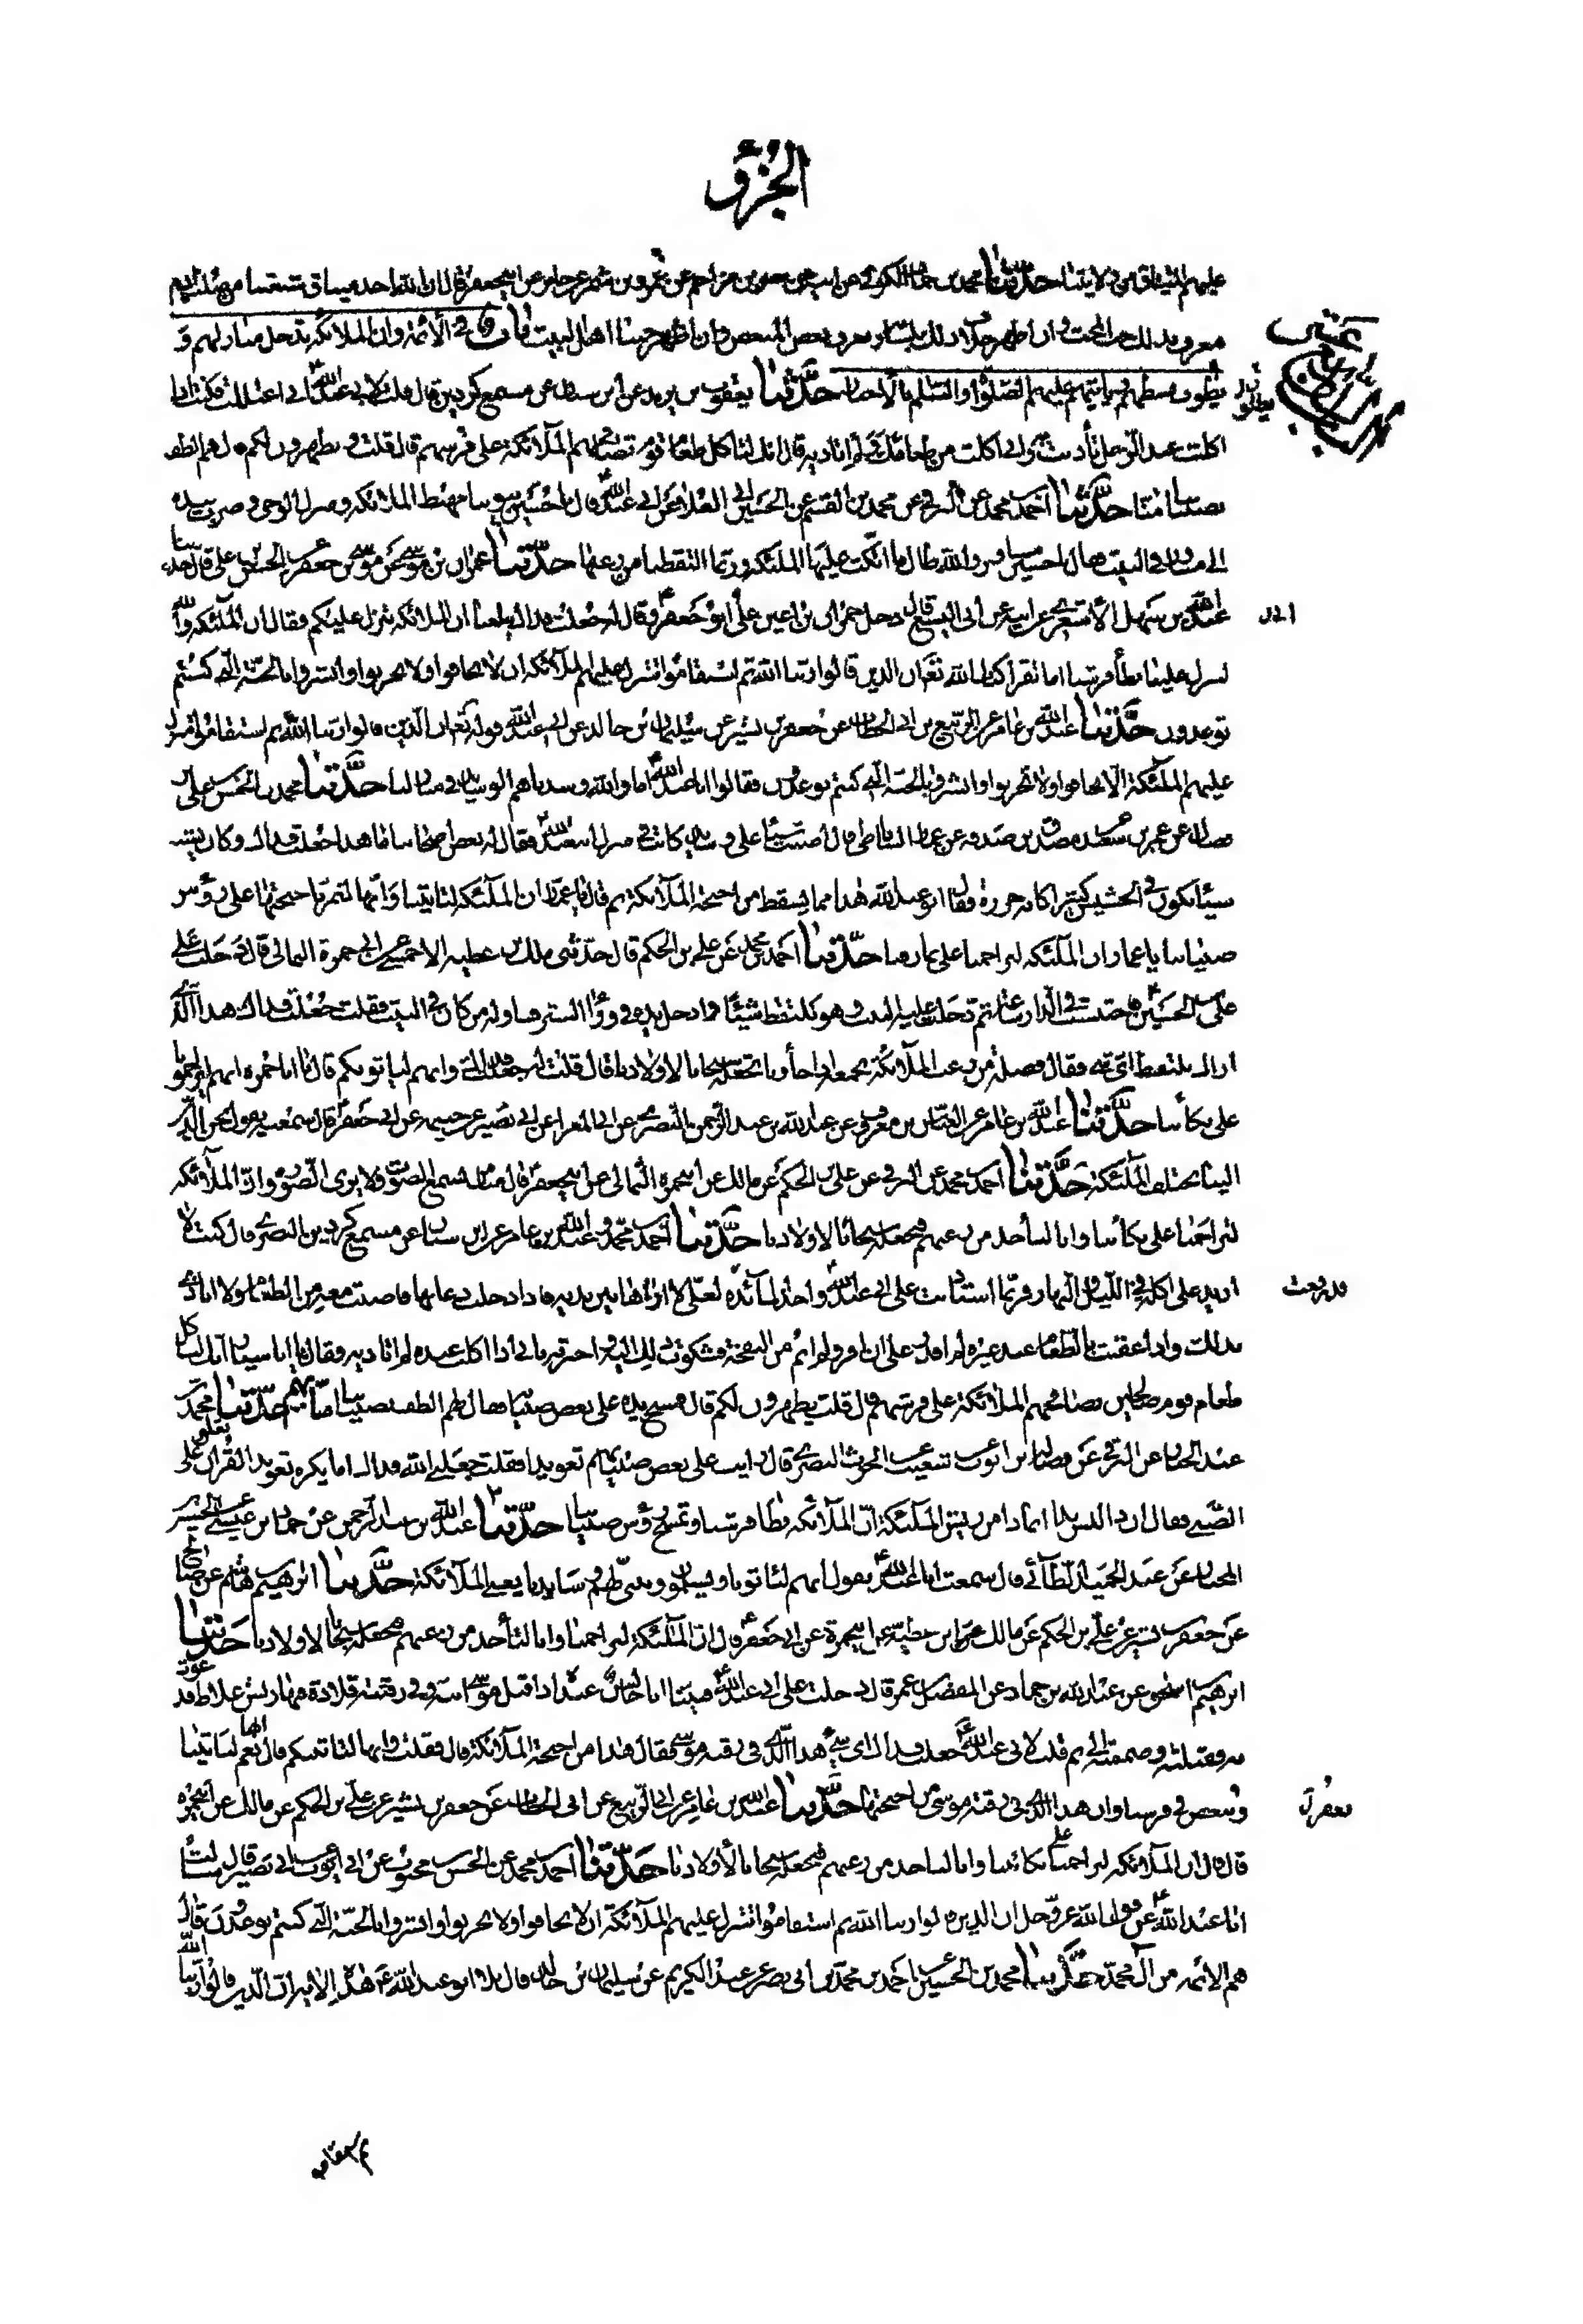 الجزؤ
عليهم الميثاق من ولايتنا حدثنا محمد بن حماد الكوفي عن ابيه عن نصر بن مزاحم عن عمرو بن شمر عن جابر عن ابيجعفر قال ان الله اخذ ميثاق شيعتنا من
باب في الائمة وان الملائكة تدخل منازلهم و
يطؤون بسطهم وياتيهم عليهم الصلوة والسلم حدثنا يعقوب بن يزيد عن ابن سنان عن مسمع كردين قال قلت لابي عبدالله اني اعتللت فكنت اذا
اكلت عند الرجل تأذيت واني اكلت من طعامك ولم اتاذ به قال انك لتاكل طعام قوم تصافحهم الملائكة على فرشهم قال قلت ويظهرون لكم قال هم الطف
بصبياننا منا حدثنا احمد بن محمد عن البرقي عن محمد بن القسم عن الحسين بن ابي العلا عن ابي عبدالله قال يا حسين بيوتنا مهبط الملائكة ومنزل الوحي وضرب بيده
الى مساور في البيت فقال يا حسين مساور والله طال ما اتكت عليها الملئكة وربما التقطنا من زغبها حدثنا عمران بن موسى عن موسى بن جعفر عن الحسن بن علي قال حدثنا
عبدالله بن سهل الاشعري عن ابيه عن ابي اليسع قال دخل حمران بن اعين على ابو جعفر وقال له جعلت فداك يبلغنا ان الملائكة تنزل عليكم فقال ان الملئكة والله
لتنزل علينا تطأ فرشنا اما تقرأ كتاب الله تعالى ان الذين قالوا ربنا الله ثم استقاموا تتنزل عليهم الملائكة ان لا تخافوا ولا تحزنوا وابشروا بالجنة التي كنتم
توعدون حدثنا عبدالله بن عامر عن الربيع بن ابي الخطاب عن جعفر بن بشير عن سليمان بن خالد عن ابي عبدالله قوله تعالى ان الذين قالوا ربنا الله ثم استقاموا تتنزل
عليهم الملئكة الا تخافوا ولا تحزنوا وابشروا بالجنة التي كنتم توعدون فقال ابا عبدالله اما والله وسدناهم الوسائد في منازلنا حدثنا محمد بن الحسن بن علي بن
فضال عن عمرو بن سعيد عن مصدق بن صدقه عن عمار الساباطي قال اصبت شيئا على وسايد كانت في منزل ابي عبدالله فقال له بعض اصحابنا ما هذا جعلت فداك وكان يشبه
شيئا يكون في الحشيش كثيرا كانه خرزة فقال ابو عبدالله هذا مما يسقط من اجنحة الملائكة ثم قال يا عمار ان الملئكة لتاتينا وانها لتمر باجنحتها على رؤس
صبياننا يا عمار ان الملئكة لتزاحمنا على نمارقنا حدثنا احمد بن محمد عن علي بن الحكم قال حدثني ملك بن عطيه الاحمسي عن ابي حمزة الثمالي قال دخلت على
علي بن الحسين فاحتبست في الدار ساعة ثم دخلت عليه البيت وهو يلتقط شيئا وادخل يده في وراء الستر فناوله من كان في البيت فقلت جعلت فداك هذا الذي
اراك تلتقط اي شيء فقال فضلة من زغب الملائكة نجمعه اذا جاؤنا نجعله سخابا لاولادنا قال قلت له جعلت فداك وانهم لياتونكم قال يا ابا حمزه انهم ليزاحمونا
على تكأتنا حدثنا عبدالله بن عامر عن العباس بن معروف عن عبدالله بن عبد الرحمن البصري عن ابي المغرا عن ابي بصير عن خيثمه عن ابي جعفر قال سمعته يقول نحن الذين
الينا تختلف الملئكة حدثنا احمد بن محمد عن البرقي عن علي بن الحكم عن مالك عن ابيحمزه الثمالي عن ابيجعفر قال منا من يسمع الصوت ولا يرى الصورة وان الملائكة
لتزاحمنا على تكأتنا وانا لنأخذ من زغبهم فنجعله سخابا لاولادنا حدثنا احمد بن محمد وعبدالله بن عامر عن ابن سنان عن مسمع كردين البصري قال كنت لا
ازيد على اكلة في الليل والنهار فربما استاذنت على ابي عبدالله واجد المائده لعلي لا اراها بين يديه فاذا دخلت دعا بها فاصبت معه من الطعام ولا اتاذى
بذلك واذا عقبت بالطعام عند غيره لم اقدر على ان اقر ولم انم من النفخة فشكوت ذلك اليه واخبرته باني اذا اكلت عنده لم اتاذ به فقال يا ابا سيار انك لتاكل
طعام قوم صالحين تصافحهم الملائكة على فرشهم قال قلت يظهرون لكم قال فمسح يده على بعض صبيانه فقال هم الطف بصبياننا منا بهم حدثنا محمد بن
عبد الجبار عن البرقي عن فضالة بن ايوب عن شعيب عن الحرث النصري قال رايت على بعض صبيانهم تعويذا فقلت جعلني الله فداك اما يكره تعويذ القران يعلق على
الصبي فقال ان ذا ليس بذا انما ذا من ريش الملئكة ان الملائكة تطا فرشنا وتمسح رؤس صبياننا حدثنا عبدالله بن عبد الرحمن عن حماد بن عيسى عن الحسين بن
المختار عن عبد الحميد الطائي قال سمعت ابا عبدالله يقول انهم لياتونا ويسلمون ونثني لهم وسايدنا يعني الملائكة حدثنا ابرهيم بن هاشم عن صالح
عن جعفر بن بشير عن علي بن الحكم عن مالك بن عطيه عن ابيحمزة عن ابي جعفر قال ان الملئكة لتزاحمنا وانا لنأخذ من زغبهم فنجعله سخابا لاولادنا حدثنا
ابرهيم بن اسحق عن عبدالله بن حماد عن المفضل بن عمر قال دخلت على ابي عبدالله فبينا انا جالس عنده اذ اقبل موسى ابنه وفي رقبته قلادة فيها ريش غلاظ فدعوت
به فقبلته وضممته الي ثم قلت لابي عبدالله جعلت فداك اي شيء هذا الذي في رقبة موسى فقال هذا من اجنحة الملائكة قال فقلت وانها لتاتيكم قال نعم انها لتاتينا
وتتعفر في فرشنا وان هذا الذي في رقبة موسى من اجنحتها حدثنا عبدالله بن عامر عن الربيع عن ابي الخطاب عن جعفر بن بشير عن علي بن الحكم عن مالك عن ابيحمزه
قال قال ان الملائكة لتزاحمنا على تكأتنا وانا لناخذ من زغبهم فنجعله سخابا لاولادنا حدثنا احمد بن محمد عن الحسن بن محبوب عن ابي ايوب عن ابي بصير قال سالت
ابا عبدالله عن قول الله عز وجل ان الذين قالوا ربنا الله ثم استقاموا تتنزل عليهم الملائكة ان لا تخافوا ولا تحزنوا وابشروا بالجنة التي كنتم توعدون قال
هم الائمه من آل محمد حدثنا محمد بن الحسين عن احمد بن محمد بن ابي نصر عن عبد الكريم عن سليمان بن خالد قال تلا ابو عبدالله هذه الاية ان الذين قالوا ربنا الله